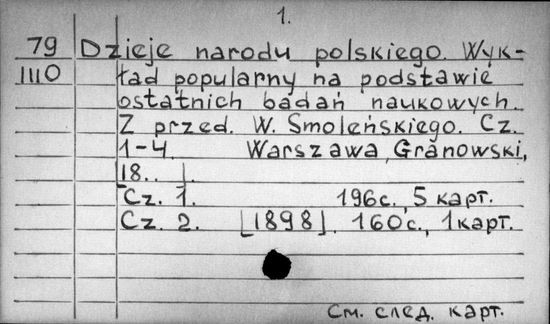 1.
79 Dzieje narodu polskiego. Wyk-
1110 ład popularny na podstawie
ostatnich badań naukowych.
Z przed. W. Smoleńskiego. Cz.
1-4. Warszawa, Granowski,
[18.. ].
Cz. 1. 196с., 5 карт.
Cz. 2. [1898]. 160с., 1карт.
См. след. карт.